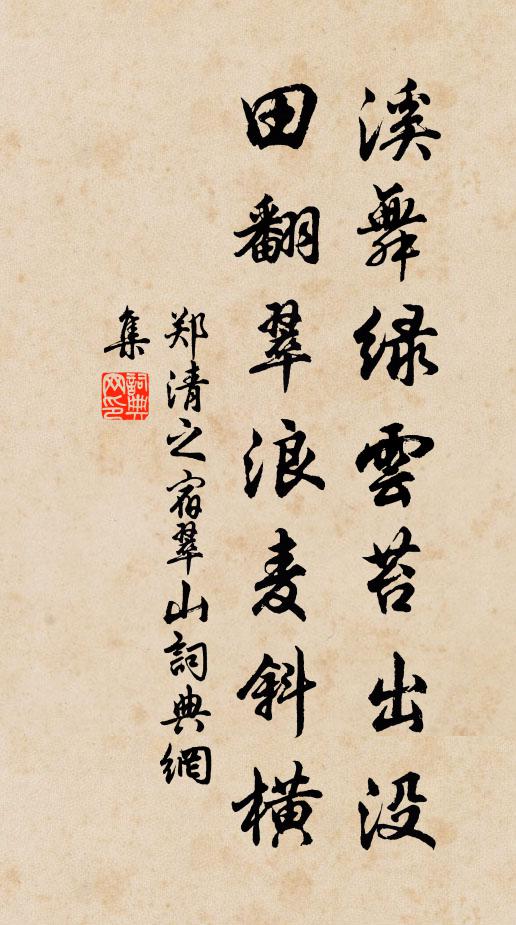 溪舞绿雲苔出没
田翻翠浪麦斜横
郑清之宿翠山詞典網
集
詞典网印